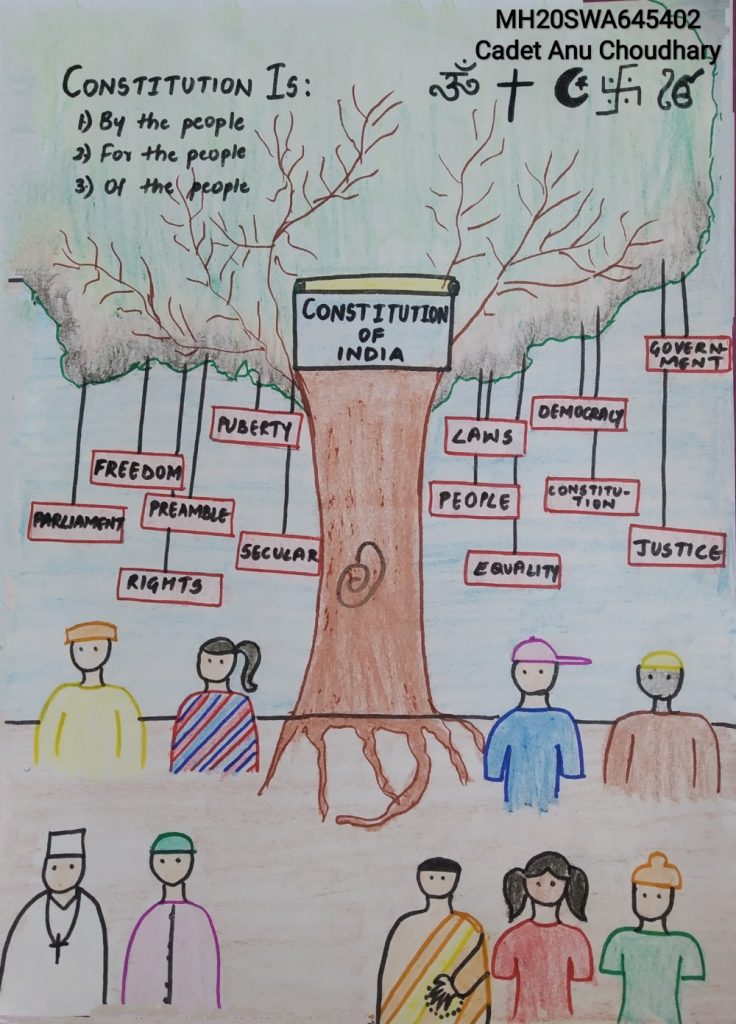 MH20SWA645402
Cadet Anu Choudhary
CONSTITUTION IS:
1) By the people
2) For the people
3) Of the people
ॐ ✝ ☪ 卐 ੴ
CONSTITUTION
OF
INDIA
GOVERN-
MENT
PUBERTY
DEMOCRACY
LAWS
FREEDOM
PREAMBLE
PARLIAMENT
PEOPLE
CONSTITU-
TION
SECULAR
JUSTICE
RIGHTS
EQUALITY